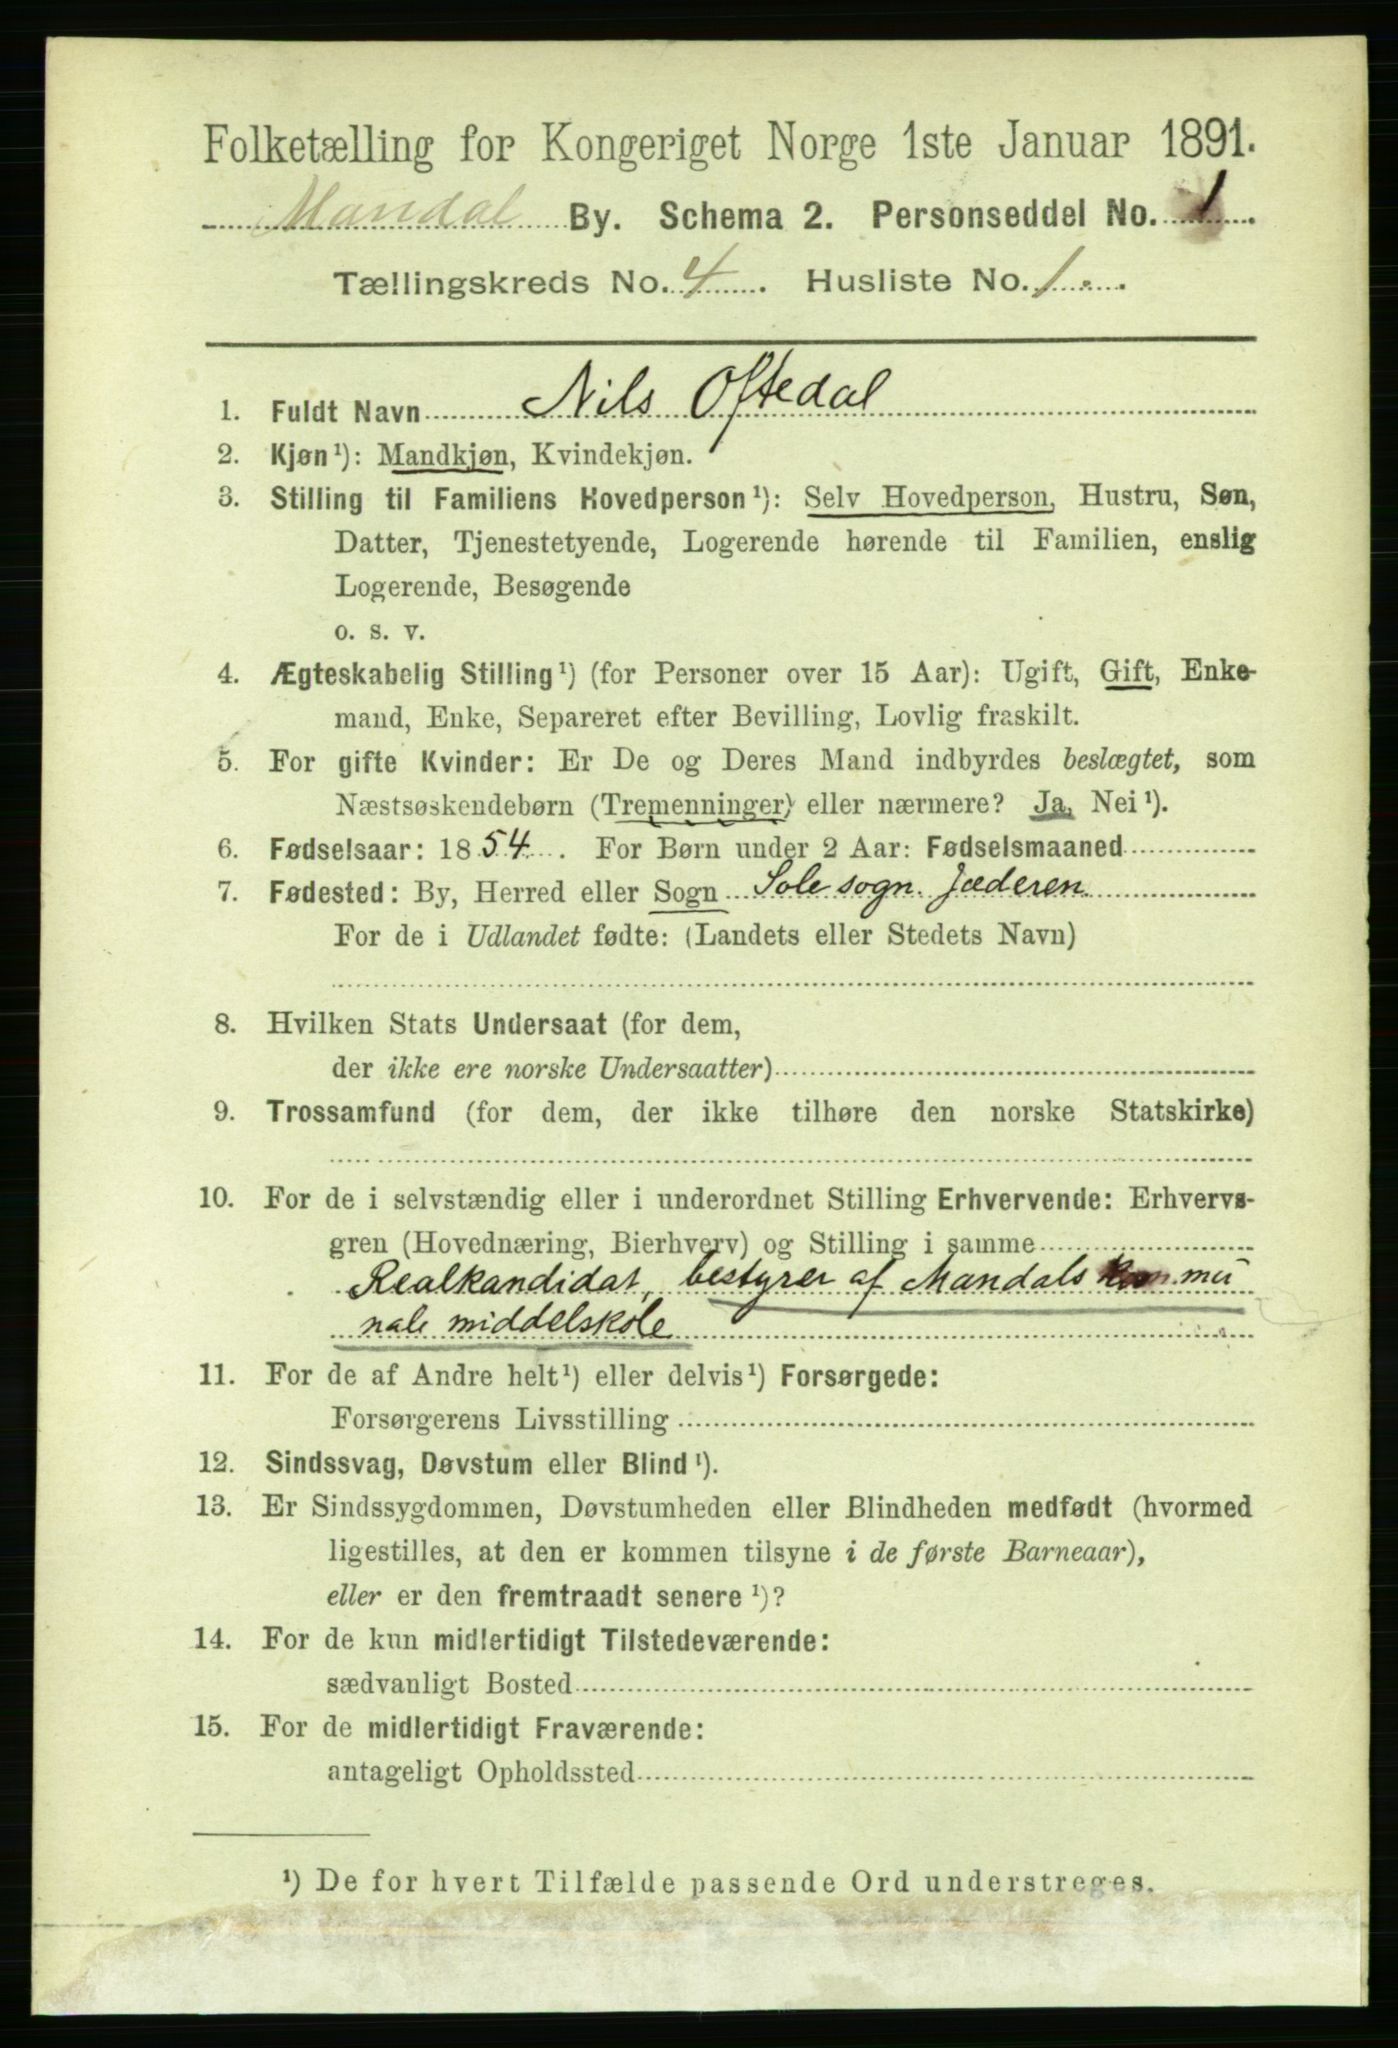 Folketælling for Kongeriget Norge 1ste Januar 1891.
Mandal By. Schema 2. Personseddel No. 1.
Tællingskreds No. 4. Husliste No. 1.
1. Fuldt Navn Nils Oftedal
2. Kjøn¹): Mandkjøn, Kvindekjøn.
3. Stilling til Familiens Hovedperson¹): Selv Hovedperson, Hustru, Søn,
Datter, Tjenestetyende, Logerende hørende til Familien, enslig
Logerende, Besøgende
o. s. v.
4. Ægteskabelig Stilling¹) (for Personer over 15 Aar): Ugift, Gift, Enke-
mand, Enke, Separeret efter Bevilling, Lovlig fraskilt.
5. For gifte Kvinder: Er De og Deres Mand indbyrdes beslægtet, som
Næstsøskendebørn (Tremenninger) eller nærmere? Ja, Nei¹).
6. Fødselsaar: 1854. For Børn under 2 Aar: Fødselsmaaned
7. Fødested: By, Herred eller Sogn Sole sogn. Jæderen.
For de i Udlandet fødte: (Landets eller Stedets Navn)
8. Hvilken Stats Undersaat (for dem,
der ikke ere norske Undersaatter)
9. Trossamfund (for dem, der ikke tilhøre den norske Statskirke)
10. For de i selvstændig eller i underordnet Stilling Erhvervende: Erhvervs-
gren (Hovednæring, Bierhverv) og Stilling i samme
Realkandidat, bestyrer af Mandals kommu
nale middelskole
11. For de af Andre helt¹) eller delvis¹) Forsørgede:
Forsørgerens Livsstilling
12. Sindssvag, Døvstum eller Blind¹).
13. Er Sindssygdommen, Døvstumheden eller Blindheden medfødt (hvormed
ligestilles, at den er kommen tilsyne i de første Barneaar),
eller er den fremtraadt senere¹)?
14. For de kun midlertidigt Tilstedeværende:
sædvanligt Bosted
15. For de midlertidigt Fraværende:
antageligt Opholdssted
¹) De for hvert Tilfælde passende Ord understreges.